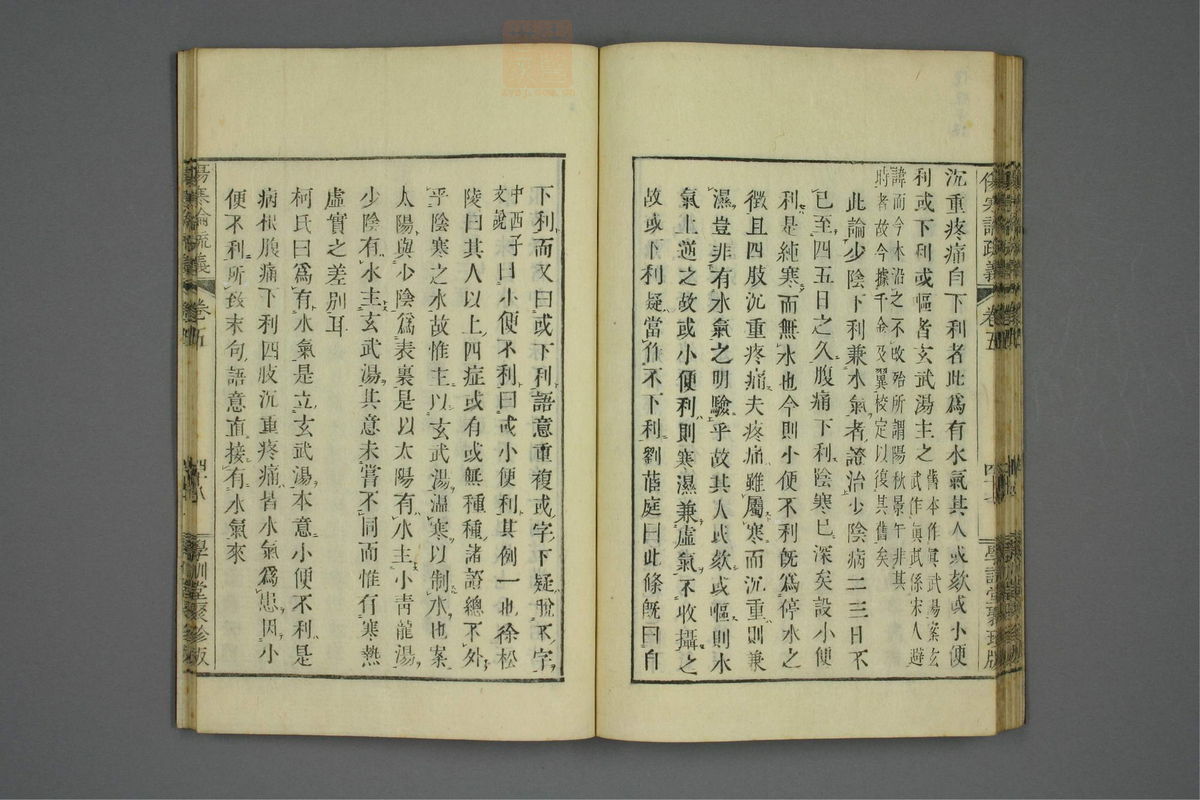 沉重疼痛自下利者此爲有水氣其人或欬或小便
利或下利或嘔者玄武湯主之
舊本作眞武湯案玄
武作眞武係宋人避
諱而今本沿之不改殆所謂陽秋景午非其
時者故今據千金及翼校定以復其舊矣
此論少陰下利兼水氣者證治少陰病二三日不
已至四五日之久腹痛下利陰寒已深矣設小便
利是純寒而無水也今則小便不利旣爲停水之
徵且四肢沉重疼痛夫疼痛雖屬寒而沉重則兼
濕豈非有水氣之明驗乎故其人或欬或嘔則水
氣上逆之故或小便利則寒濕兼虛氣不收攝之
故或下利疑當作不下利劉蓓庭曰此條旣曰自
傷寒論疏義
卷五
學訓堂聚珍版
下利而又曰或下利語意重複或字下疑脫不字
中西子
文說
曰小便不利曰或小便利其例一也徐松
陵曰其人以上四症或有或無種種諸證總不外
乎陰寒之水故惟主以玄武湯溫寒以制水也案
太陽與少陰爲表裏是以太陽有水主小青龍湯
少陰有水主玄武湯其意未嘗不同而惟有寒熱
虛實之差別耳
柯氏曰爲有水氣是立玄武湯本意小便不利是
病根腹痛下利四肢沉重疼痛皆水氣爲患因小
便不利所致末句語意直接有水氣來
傷寒論疏義
卷五
四十八
學訓堂聚珍版